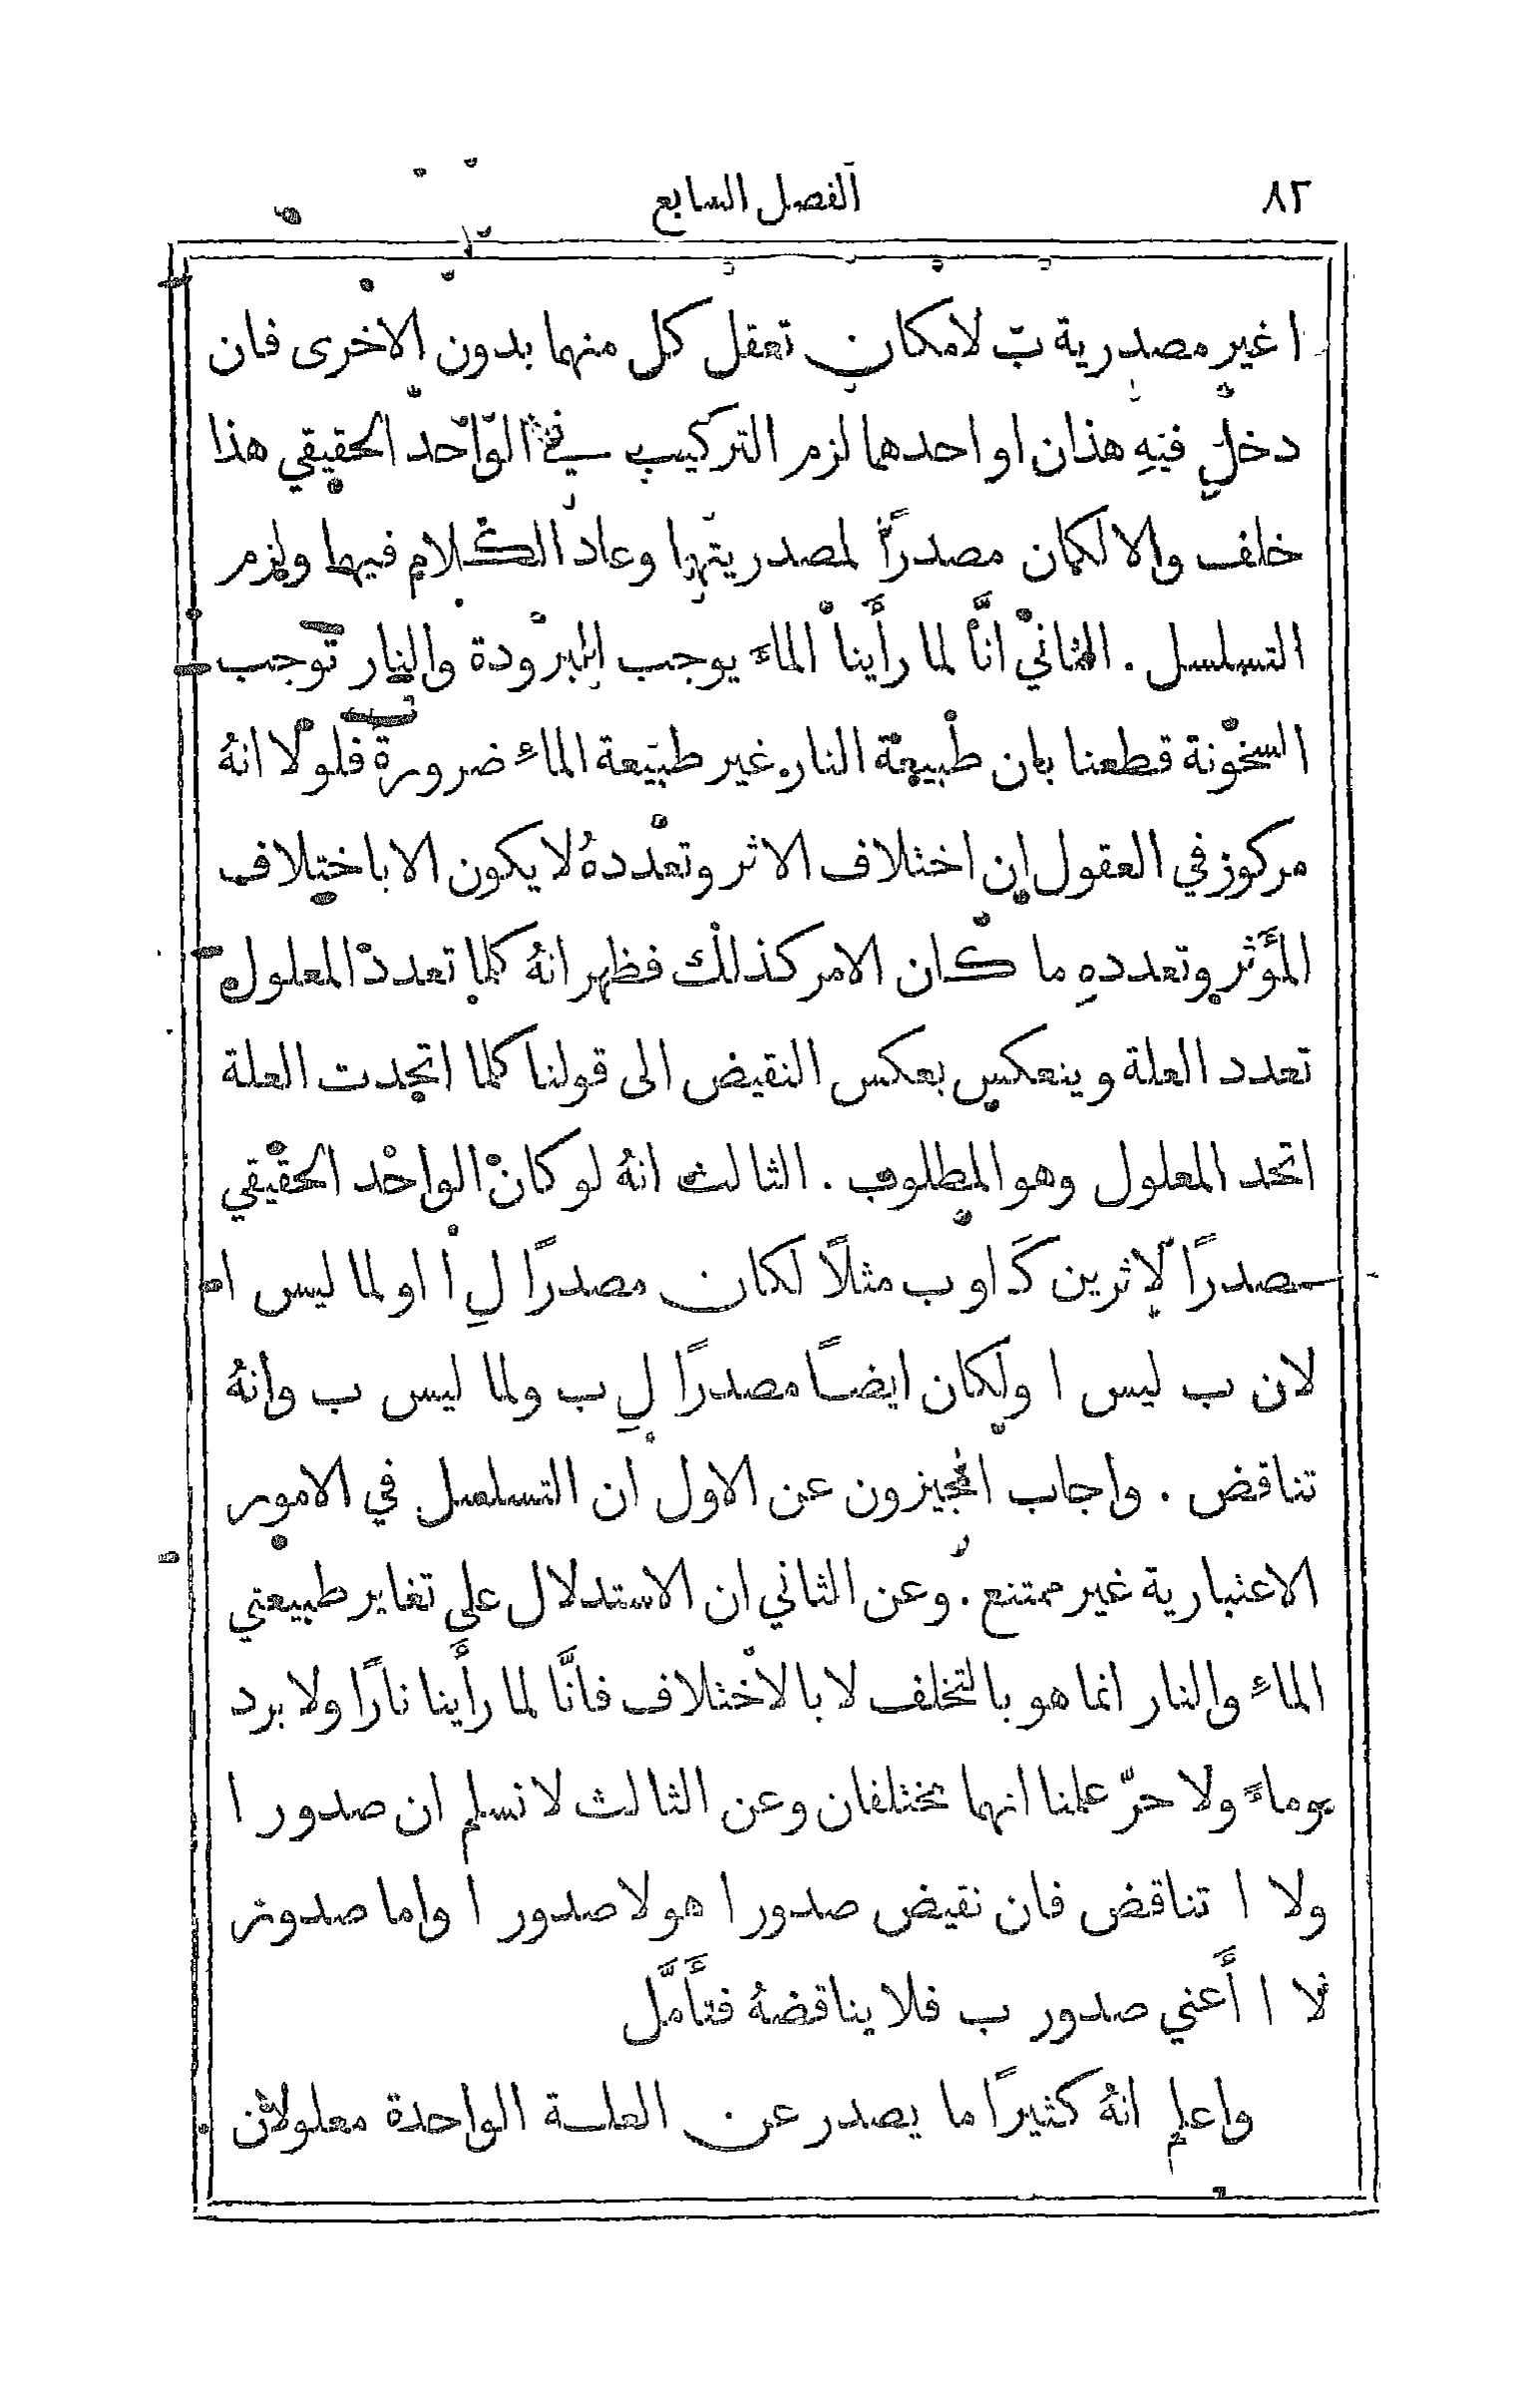 ٨٢
الفصل السابع
ا غير مصدرية ب لامكان تعقل كل منهما بدون الاخرى فان
دخل فيهِ هذان او احدهما لزم التركيب في الواحد الحقيقي هذا
خلف والا لكان مصدرًا لمصدريتهما وعاد الكلام فيهما ولزم
التسلسل . الثاني انَّا لما رأَينا الماءَ يوجب البرودة والنار توجب
السخونة قطعنا بان طبيعة النار غير طبيعة الماءِ ضرورة فلولا انهُ
مركوز في العقول ان اختلاف الاثر وتعددهُ لا يكون الا باختلاف
المؤَثر وتعددهِ ما كان الامر كذلك فظهر انهُ كلما تعدد المعلول
تعدد العلة وينعكس بعكس النقيض الى قولنا كلما اتحدت العلة
اتحد المعلول وهو المطلوب . الثالث انهُ لو كان الواحد الحقيقي
مصدرًا لاثرين كَا و ب مثلاً لكان مصدرًا لِ ا و لما ليس ا
لان ب ليس ا ولكان ايضًا مصدرًا لِ ب ولما ليس ب وانهُ
تناقض . واجاب المجيزون عن الاول ان التسلسل في الامور
الاعتبارية غير ممتنع . وعن الثاني ان الاستدلال على تغاير طبيعتي
الماءِ والنار انما هو بالتخلف لا بالاختلاف فانَّا لما رأَينا نارًا ولا برد
وماءً ولا حرّ علمنا انهما مختلفان وعن الثالث لا نسلم ان صدور ا
ولا ا تناقض فان نقيض صدور ا هو لا صدور ا واما صدور
لا ا أَعني صدور ب فلا يناقضهُ فتأَمَّل
واعلم انهُ كثيرًا ما يصدر عن العلة الواحدة معلولان